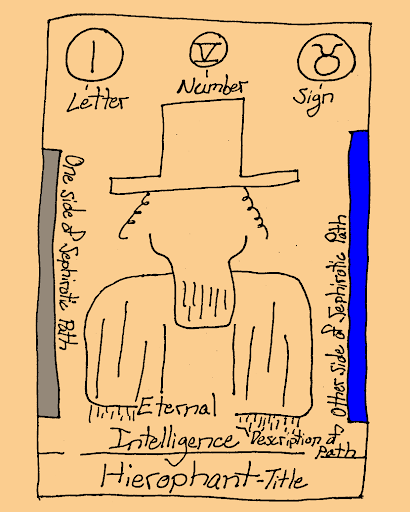 V
Letter
Number
Sign
One side of Sephirotic Path
Other side of Sephirotic Path
Eternal
Intelligence
Description of
Path
Hierophant-Title